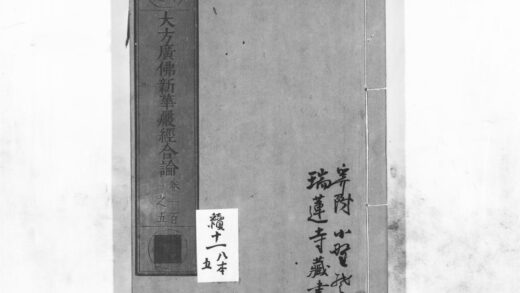 大方廣佛新華嚴經合論
卷一百
之五
續十一ノ八本
五
寄附 小野
瑞蓮寺藏書